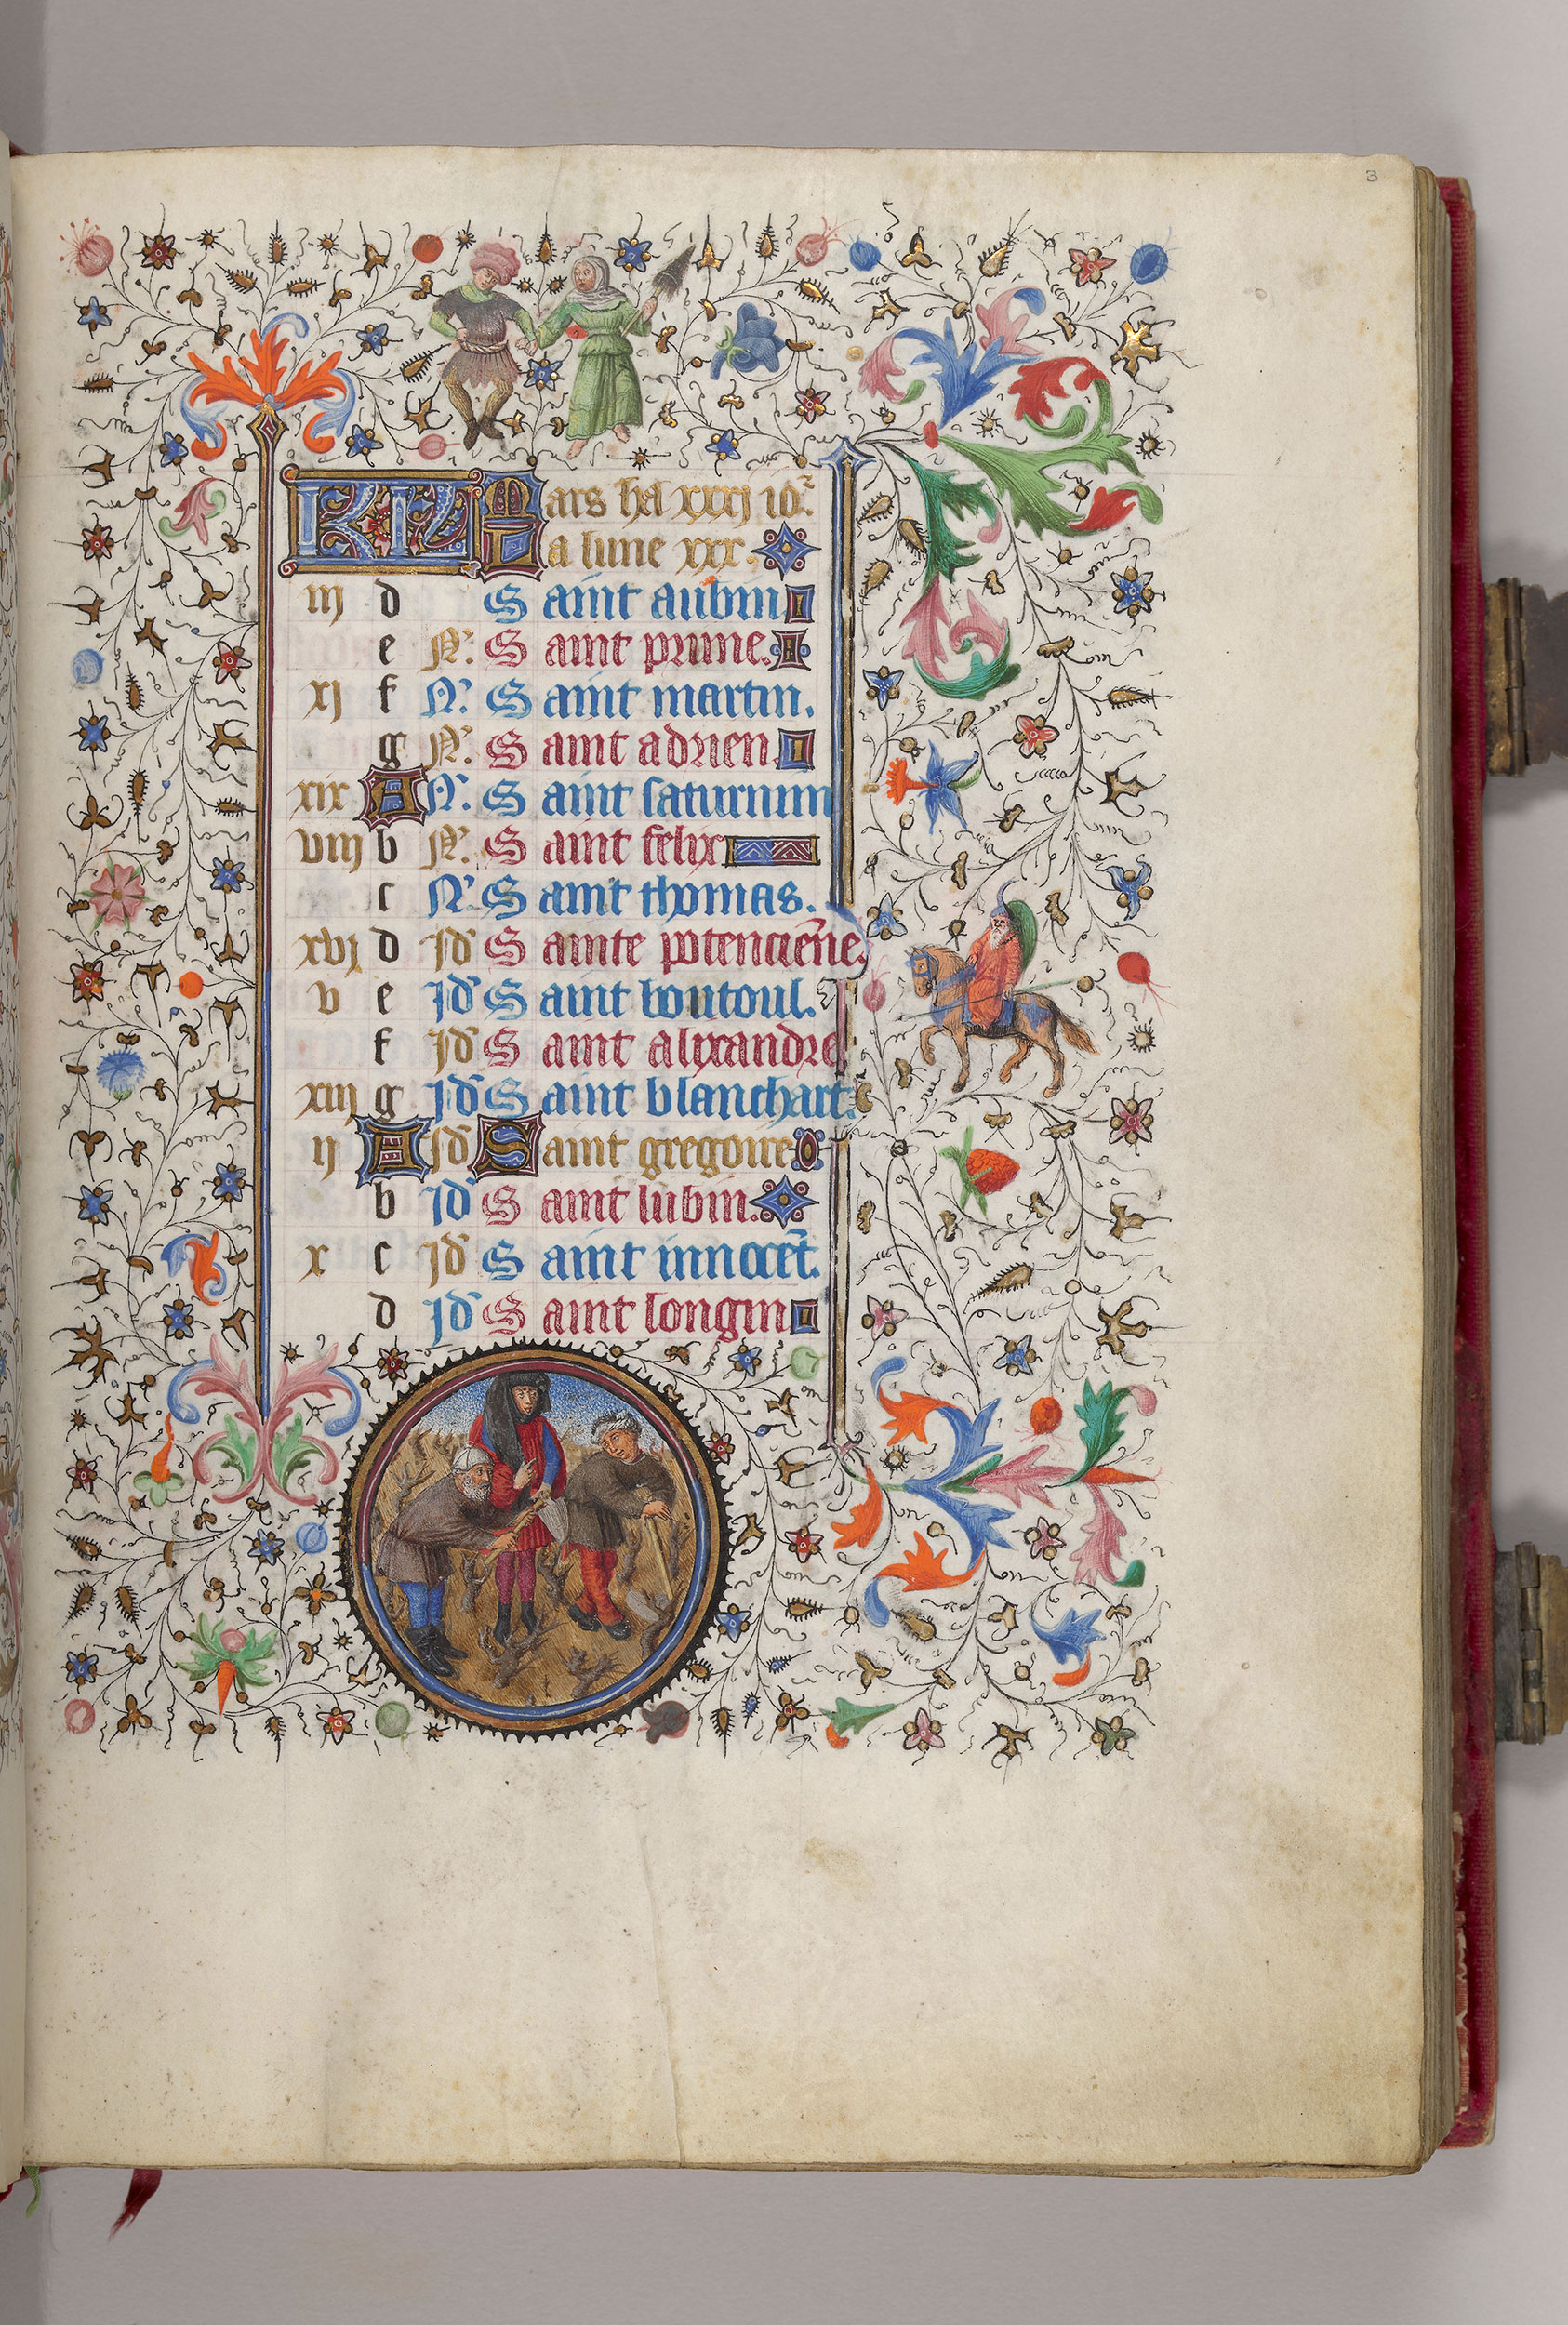 3
KL Mars ha xxxj iors
La lune xxx.
iij d Saint aubin
e N. Saint prime.
xj f N. Saint martin.
g N. Saint adrien
xix A N. Saint saturnin
viij b N. Saint felix
c N. Saint thomas.
xvj d Jd Sainte potencien̄e.
v e Jd Saint boutoul.
f Jd Saint alixandre
xiij g Jd Saint blanchart.
ij A Jd Saint gregoire
b Jd Saint lubin.
x c Jd Saint innocēt.
d Jd Saint longin